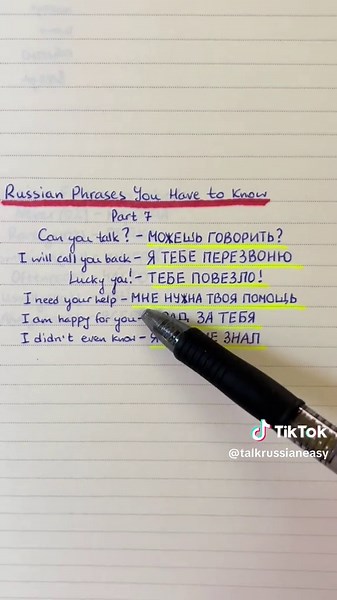 Russian Phrases You Have to Know
Part 7
Can you talk? - МОЖЕШЬ ГОВОРИТЬ?
I will call you back - Я ТЕБЕ ПЕРЕЗВОНЮ
Lucky you! - ТЕБЕ ПОВЕЗЛО!
I need your help - МНЕ НУЖНА ТВОЯ ПОМОЩЬ
I am happy for you - ЗА ТЕБЯ
I didn't even know - Я ЗНАЛ
TikTok
@talkrussianeasy